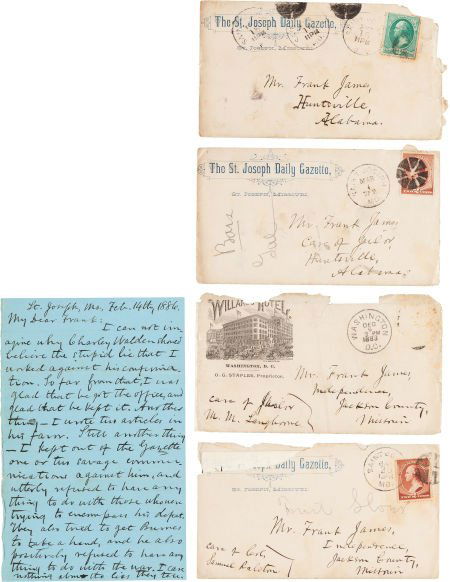 The St. Joseph Daily Gazette,
St. Joseph, Missouri
Mr. Frank James,
Huntsville,
Alabama.
The St. Joseph Daily Gazette,
St. Joseph, Missouri
Mr. Frank James
Care of Jailor,
Huntsville,
Alabama.
WILLARD'S HOTEL,
WASHINGTON, D. C.
O. G. STAPLES, Proprietor.
WASHINGTON
DEC
1883
D.C.
Mr. Frank James
Independence,
Jackson County,
Missouri
care of Jailor
M. M. Langhorne
Daily Gazette,
St. Joseph, Missouri
Mr. Frank James,
Independence,
Jackson County,
Missouri
care of Col.
Samuel Ralston
St. Joseph, Mo. Feb. 14th 1886.
My Dear Frank:
I can not im
agine why Charley Walden should
believe the stupid lie that I
worked against his confirma
tion. So far from that, I was
glad that he got the office, and
glad that he kept it. Another
thing — I wrote two articles in
his favor. Still another thing
— I kept out of the Gazette
one or two savage commu
nications against him, and
utterly refused to have any
thing to do with those who were
trying to encompass his defeat.
They also tried to get Burnes
to take a hand, and he also
positively refused to have any
thing to do with the war. I can
nothing about the lies they tell